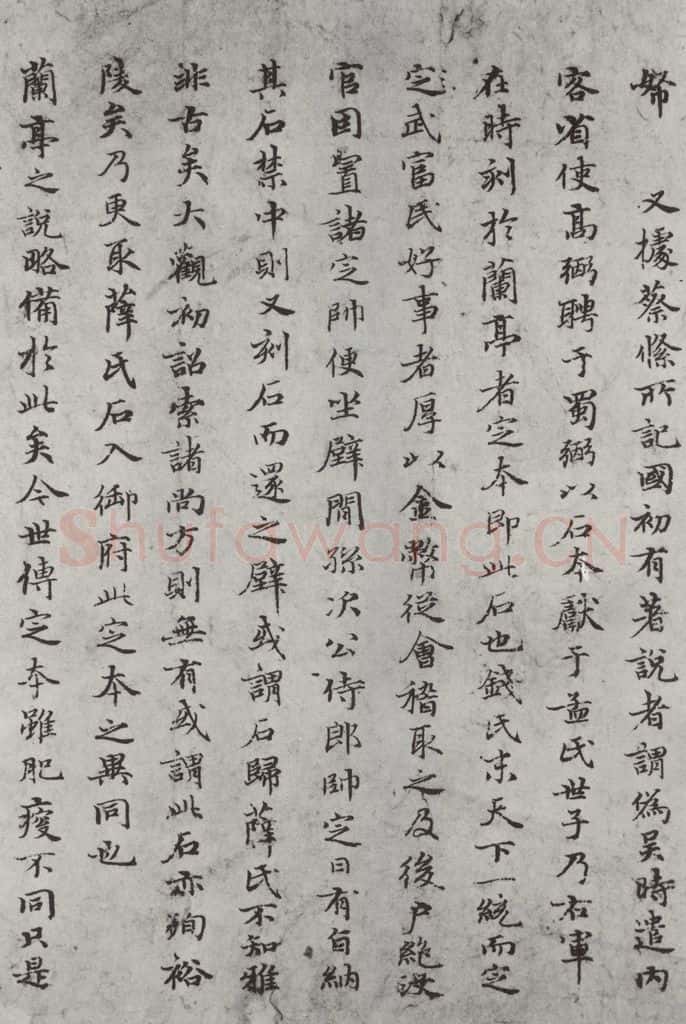 幣　又據蔡絛所記國初有著說者謂僞吳時遣內
客省使高弼聘于蜀弼以石夲獻于孟氏世子乃右軍
在時刻於蘭亭者定夲即此石也錢氏末天下一統而定
定武富民好事者厚以金幣從會稽取之及後户絶沒
官因置諸定帥便坐壁間孫次公侍郎帥定日有旨納
其石禁中則又刻石而還之壁或謂石歸薛氏不知雅
非古矣大觀初詔索諸尚方則無有或謂此石亦殉裕
陵矣乃更取薛氏石入御府此定夲之異同也
蘭亭之說略備於此矣今世傳定夲雖肥瘦不同只是
Shufawang.CN